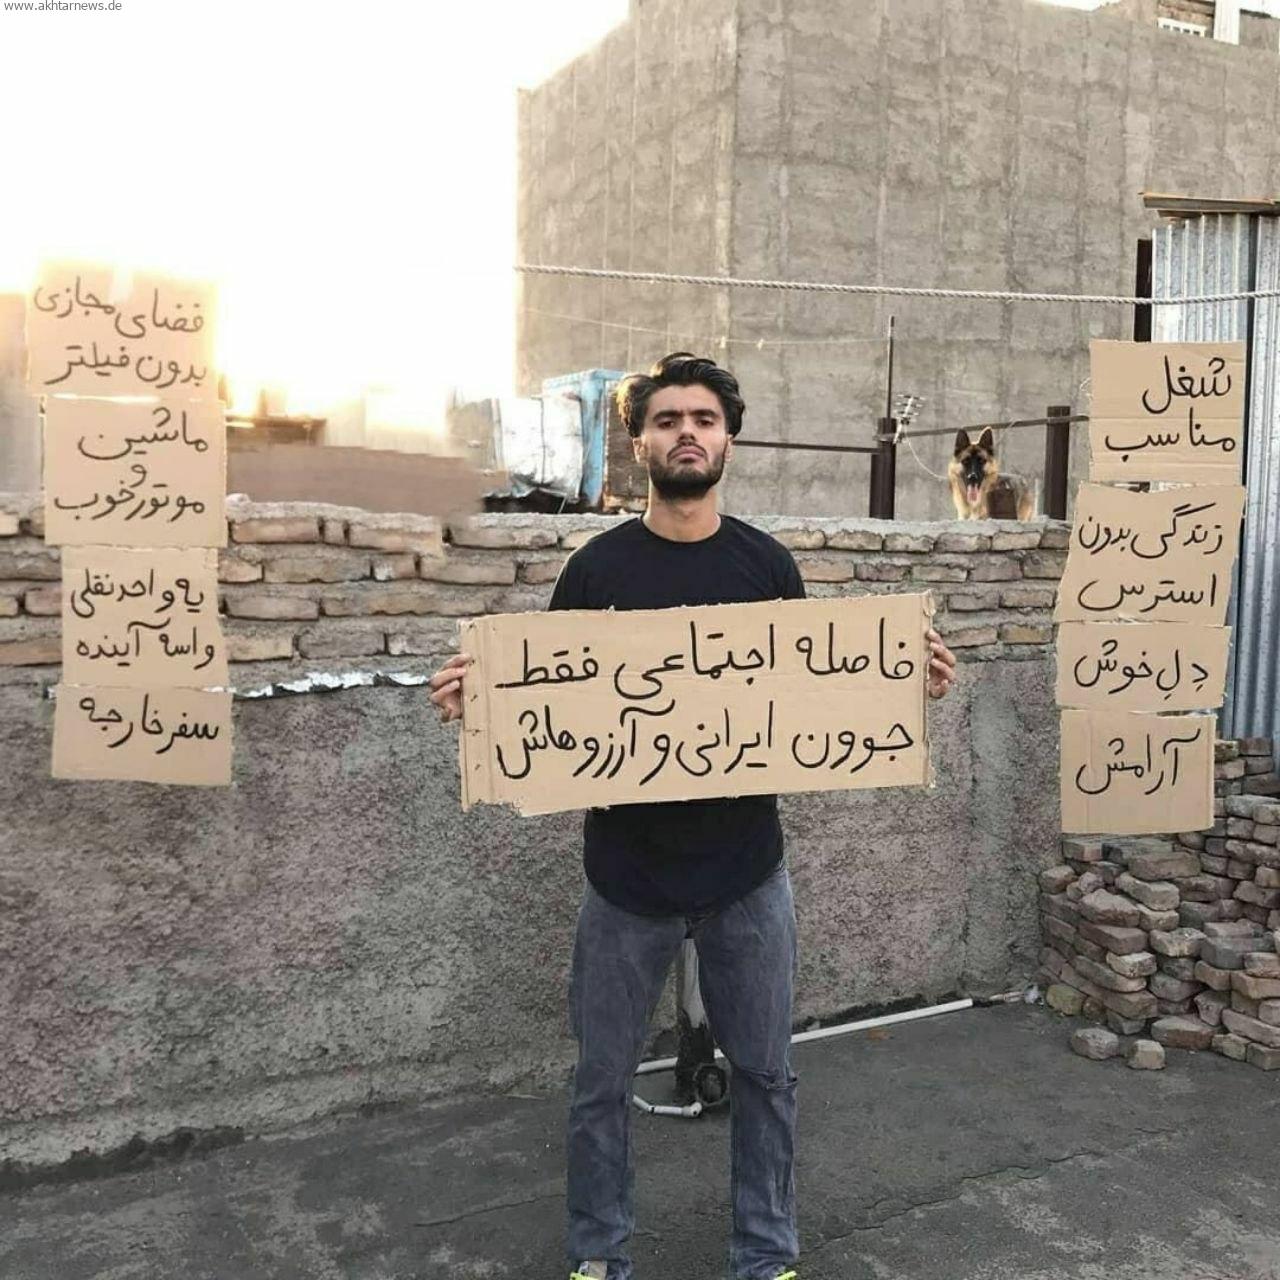 www.akhtarnews.de
شغل
مناسب
زندگی بدون
استرس
دِلِ خوش
آرامش
فاصله اجتماعی فقط
جوون ایرانی و آرزوهاش
فضای مجازی
بدون فیلتر
ماشین
و
موتور خوب
یه واحد نقلی
واسه آینده
سفر خارجه